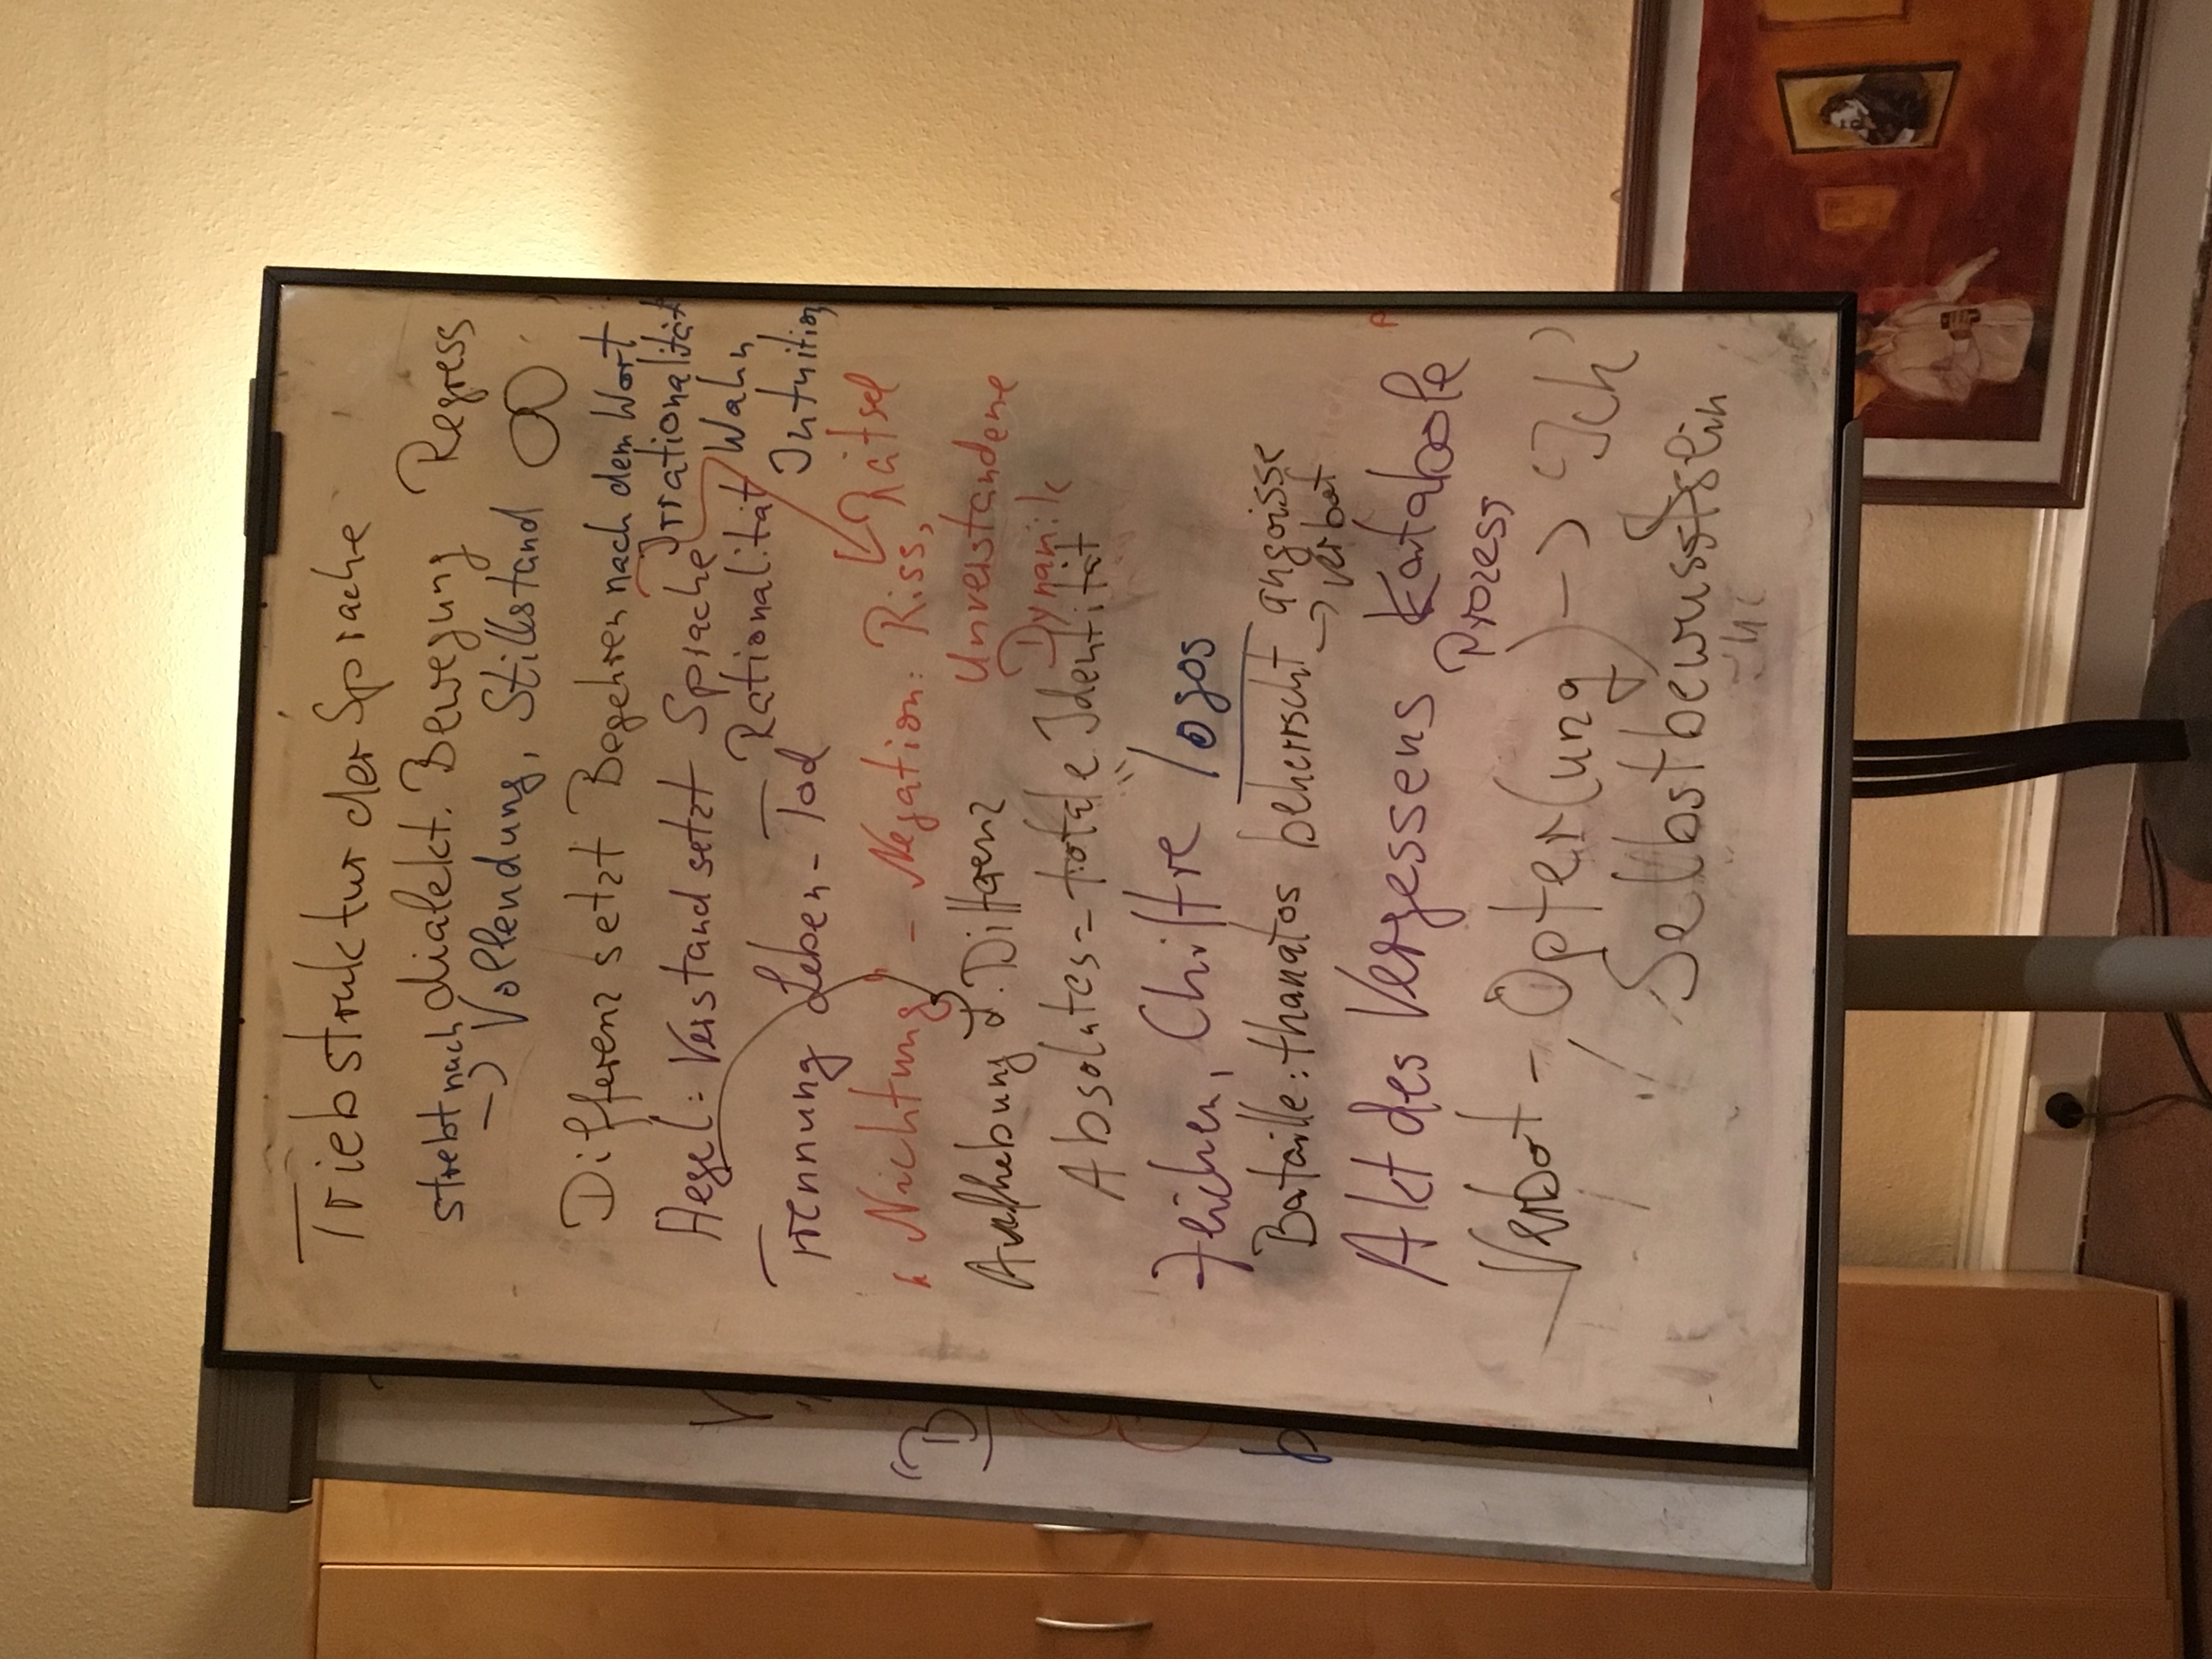 Triebstruktur der Sprache
strebt nach dialekt. Bewegung Regress
→ Vollendung, Stillstand ∞
Differenz setzt Begehren nach dem Wort
Hegel: Verstand setzt Sprache Irrationalität
Rationalität Wahn
Trennung Leben - Tod Intuition
Nichtung - Negation: Riss, Rätsel
Unverstandene
Aufhebung d. Differenz Dynamik
Absolutes = totale Identität
Zeichen, Chiffre / logos
Bataille: thanatos beherrscht angoisse
→ Verbot
Akt des Vergessens Katabole
Prozess
Verbot - Opfer(ung) → Ich
Selbstbewusstsein